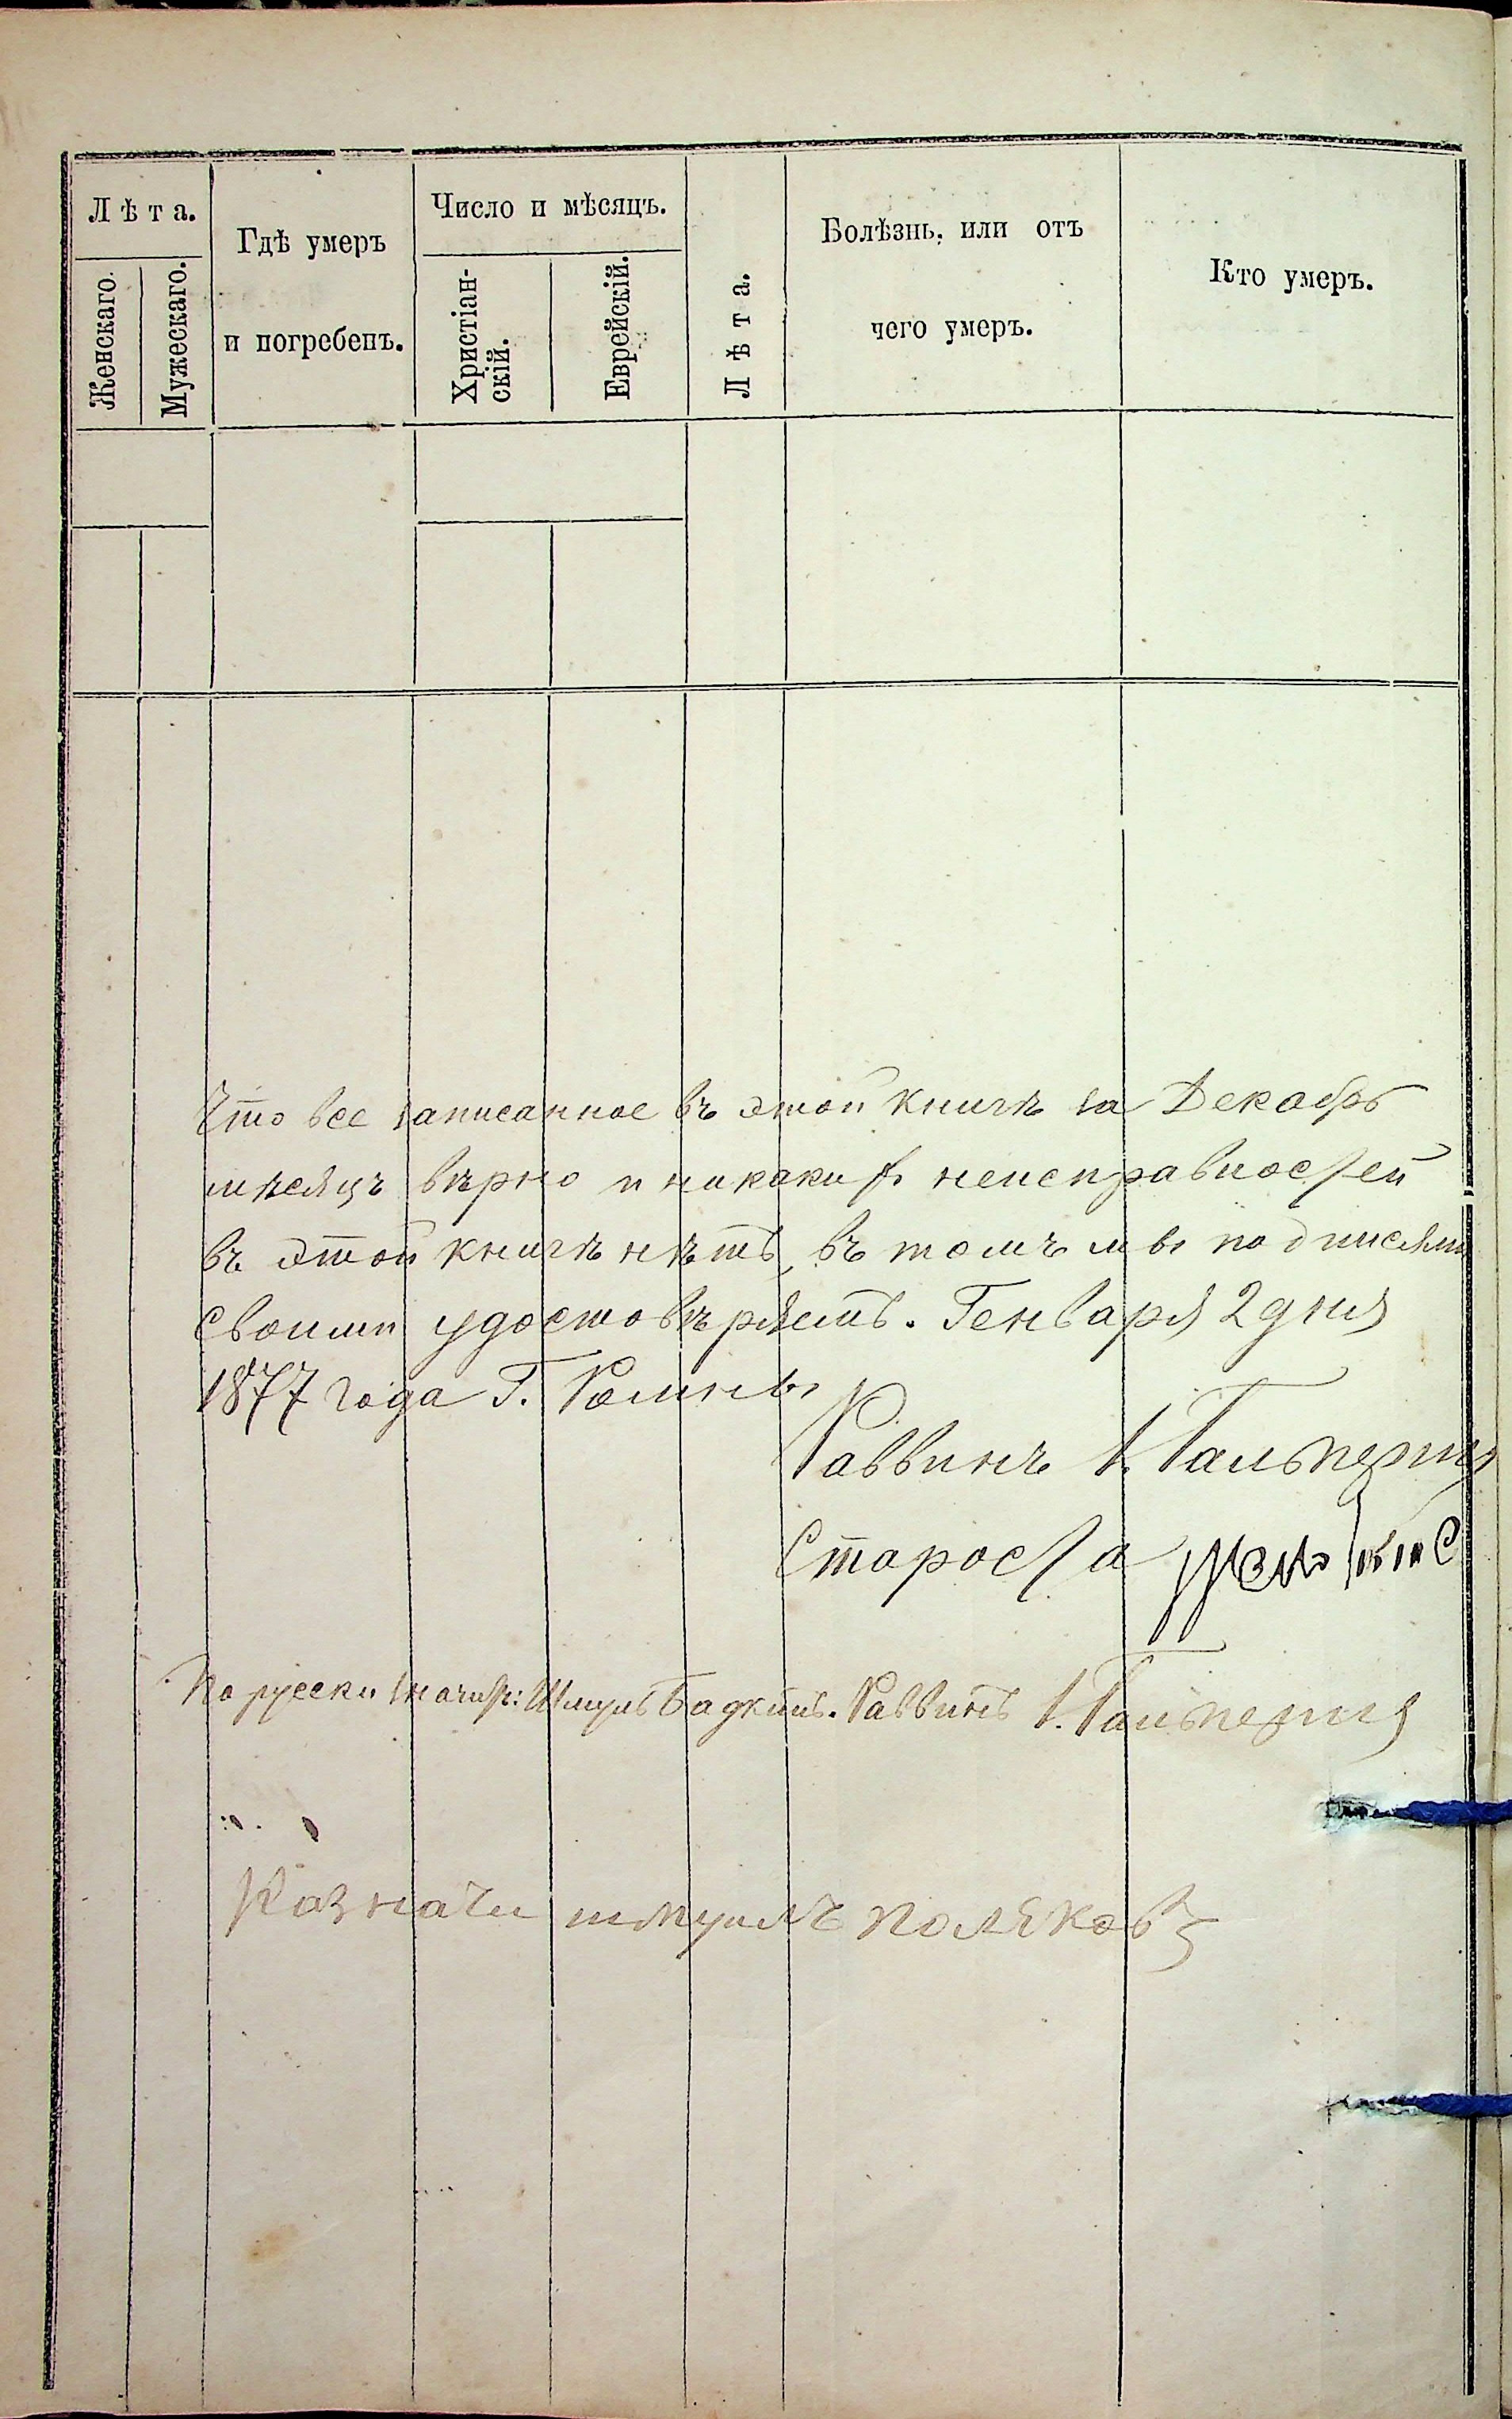 Лѣта.
Женскаго.
Мужескаго.
Гдѣ умеръ
и погребенъ.
Число и мѣсяцъ.
Христіан-
скій.
Еврейскій.
Лѣта.
Болѣзнь, или отъ
чего умеръ.
Кто умеръ.
Что все записанное въ этой книгѣ за Декабрь
мѣсяцъ вѣрно и никакихъ неисправностей
въ этой книгѣ нѣтъ, въ томъ мы подписями
своими удостовѣряемъ. Генваря 2 дня
1877 года Г. Ромны
Раввинъ І. Гальперинъ
Староста
По русски значитъ: Шмуль Раввинъ І. Гальперинъ
Казначи шмуилъ поляковъ